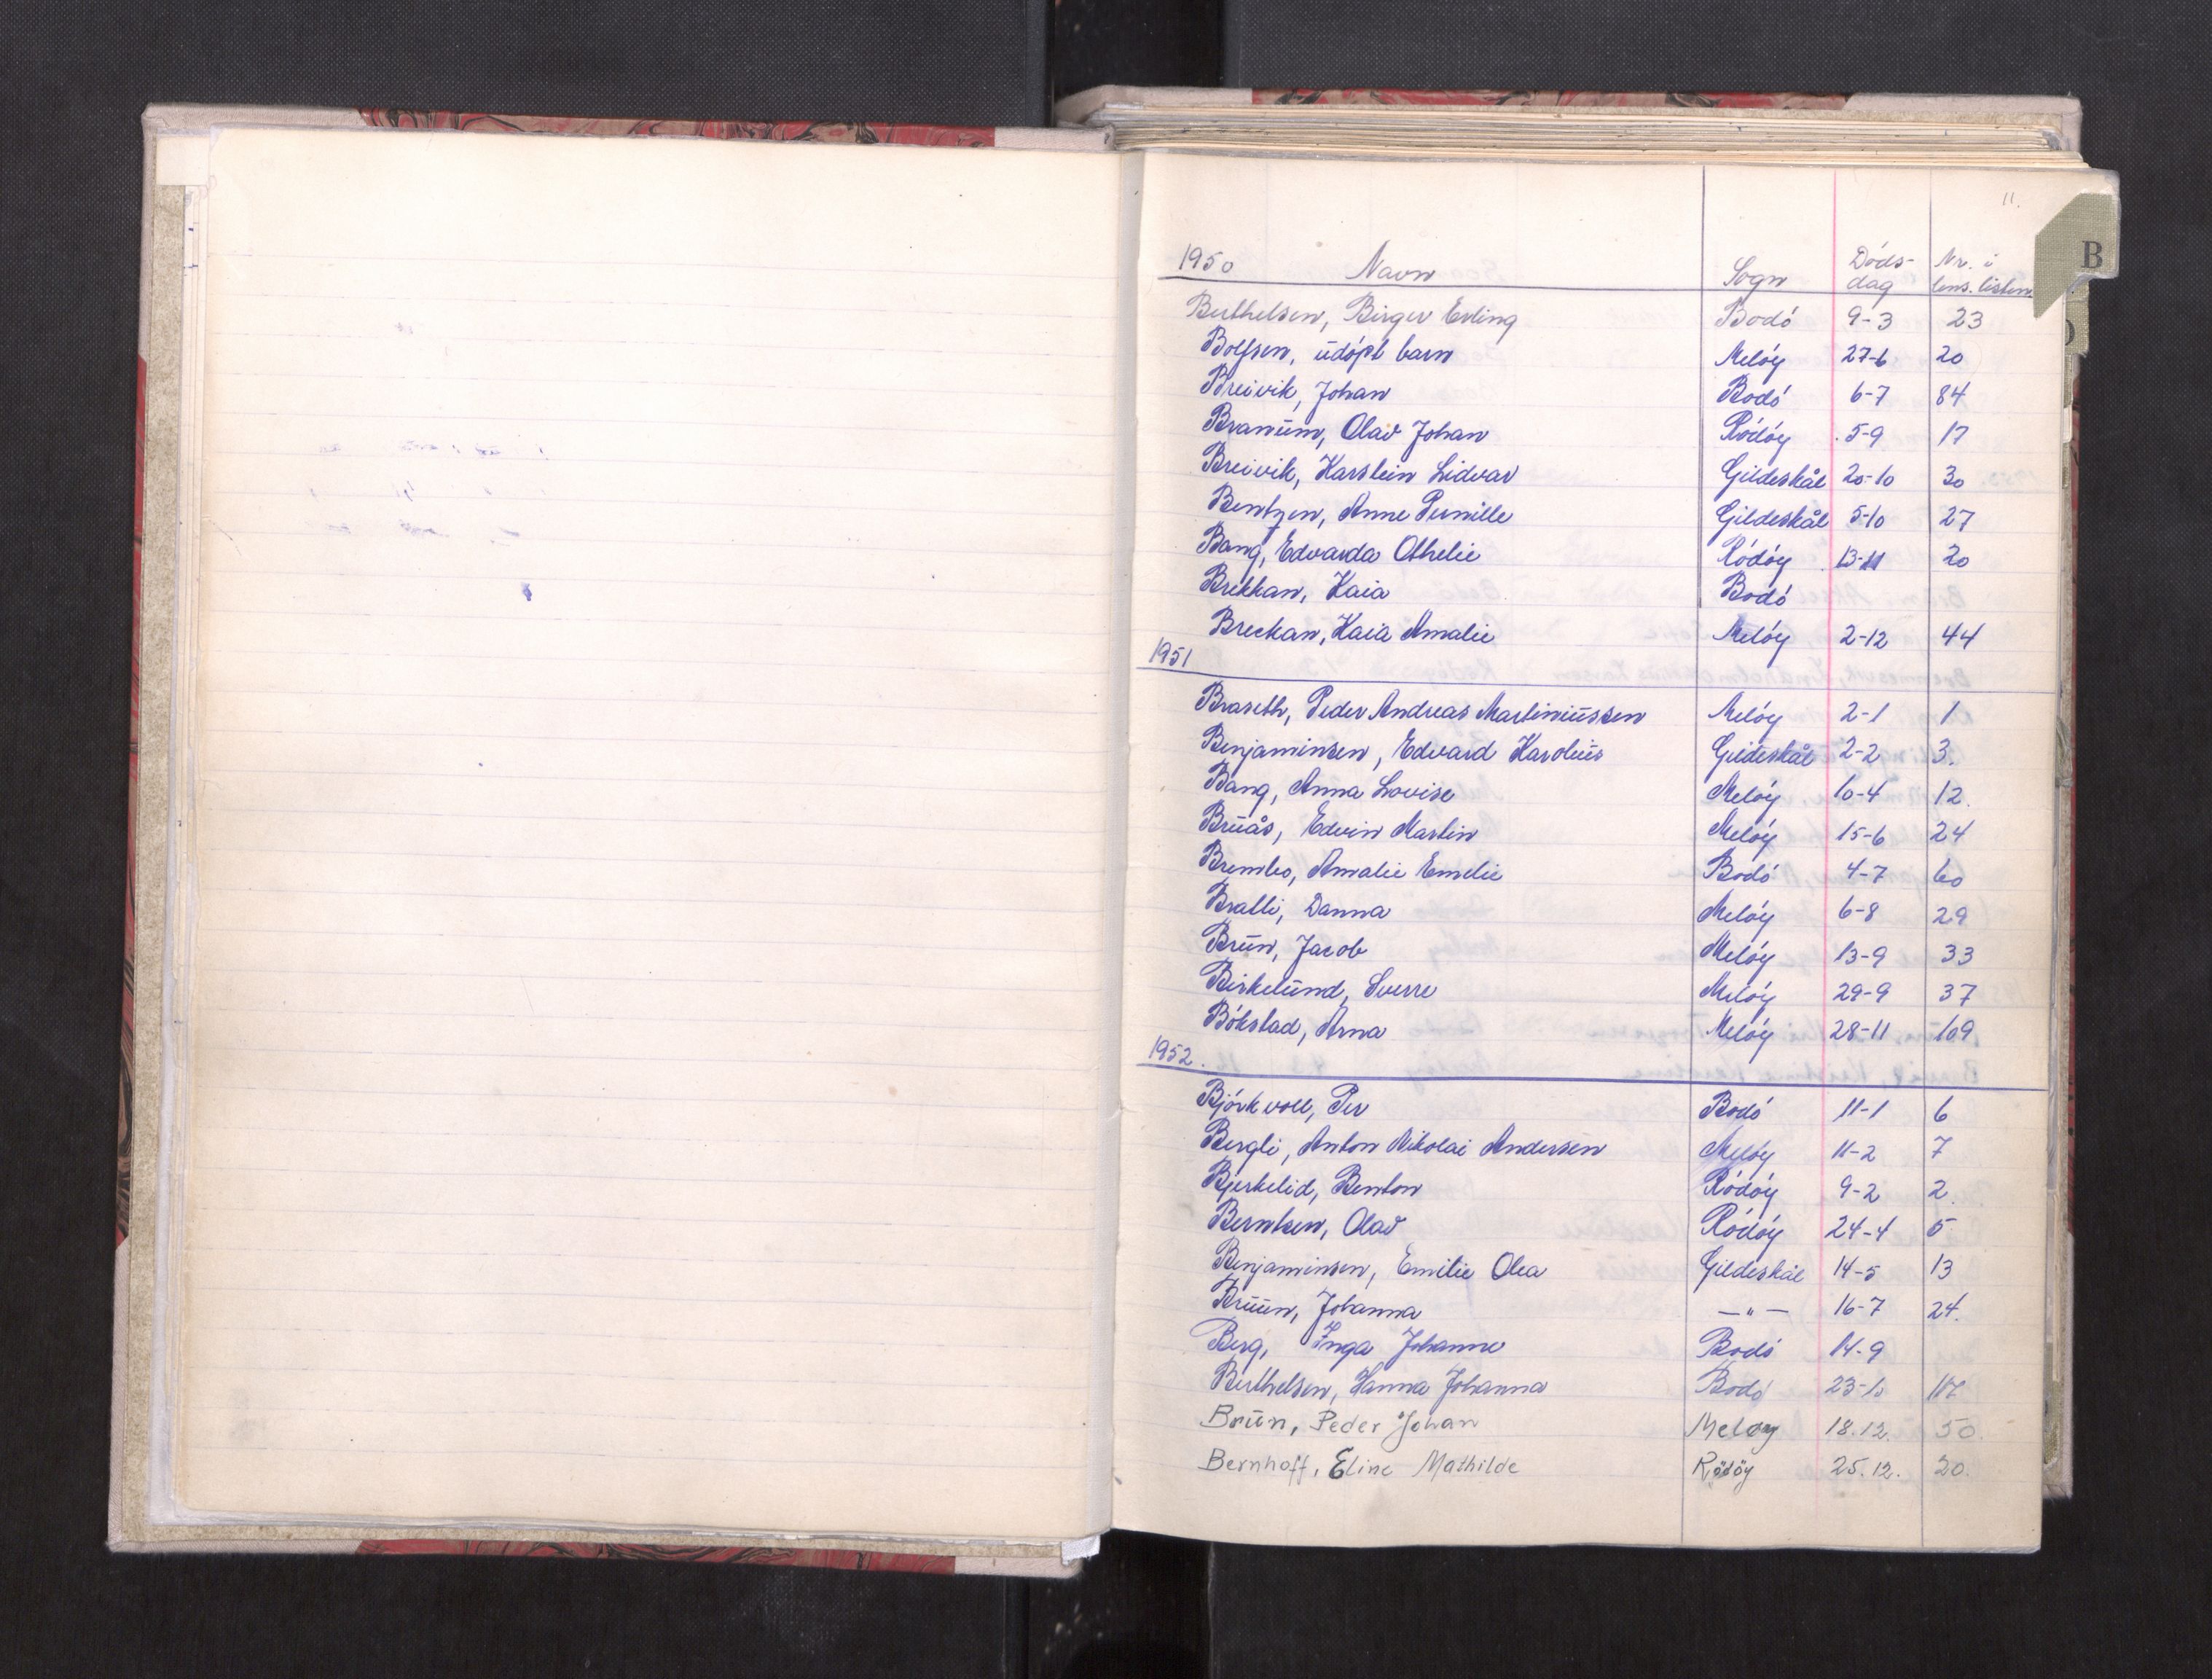 11.
B
1950 Navn Sogn Døds-dag Nr. i lens.listen
Berthelsen, Birger Erling Bodó 9-3 23
Bolfsen, udópt barn Melóy 27-6 20
Breivik, Johan Bodó 6-7 84
Branum, Olav Johan Ródóy 5-9 17
Breivik, Karstein Lidvar Gildeskål 20-10 30
Bentzen, Anne Pernille Gildeskål 5-10 27
Bang, Edvarda Othelie Ródóy 13-11 20
Brekkan, Kaia Bodó
Breckan, Kaia Amalie Melóy 2-12 44
1951
Braseth, Peder Andreas Martiniussen Melóy 2-1 1
Benjaminsen, Edvard Karolius Gildeskål 2-2 3.
Bang, Anna Lovise Melóy 10-4 12.
Bruås, Edvin Martin Melóy 15-6 24
Brembo, Amalie Emelie Bodó 4-7 60
Bratli, Danna Melóy 6-8 29
Brun, Jacob Melóy 13-9 33
Birkelund, Sverre Melóy 29-9 37
Bókstad, Arna Melóy 28-11 109
1952.
Bjórkvoll, Per Bodó 11-1 6
Bergli, Anton Nikolai Andersen Melóy 11-2 7
Bjerkelid, Benton Ródóy 9-2 2.
Berntsen, Olav Ródóy 24-4 5
Benjaminsen, Emilie Olea Gildeskål 14-5 13
Bruun, Johanna —"— 16-7 24.
Berg, Inga Johanne Bodó 14-9
Berthelsen, Hanna Johanna Bodó 23-10 117
Brun, Peder Johan Meløy 18.12. 50.
Bernhoff, Eline Mathilde Rødøy 25.12. 20.